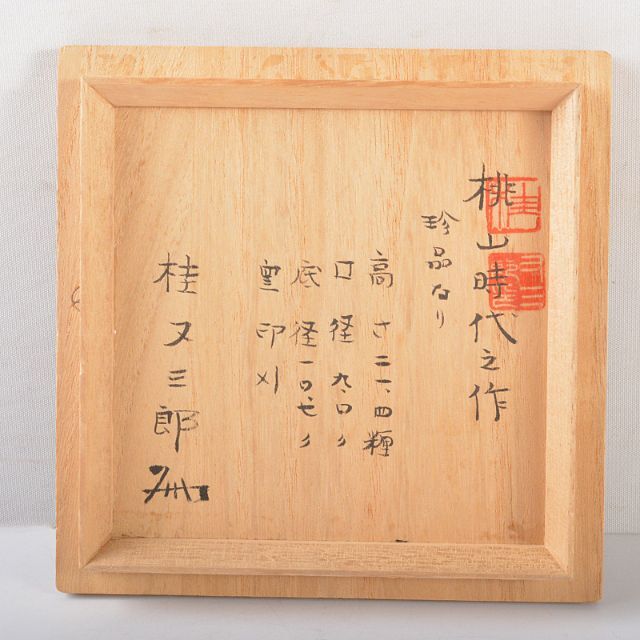 桃山時代之作
珍品なり
高さ二一.四糎
口径九.〇〃
底径一〇.七〃
窯印
桂又三郎